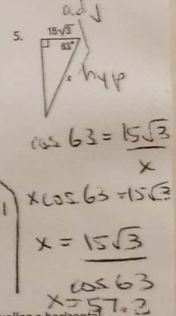 adj
5.
15√3
63°
x
hyp
cos 63 = 15√3
x
x cos 63 = 15√3
x = 15√3
cos 63
x = 57.2